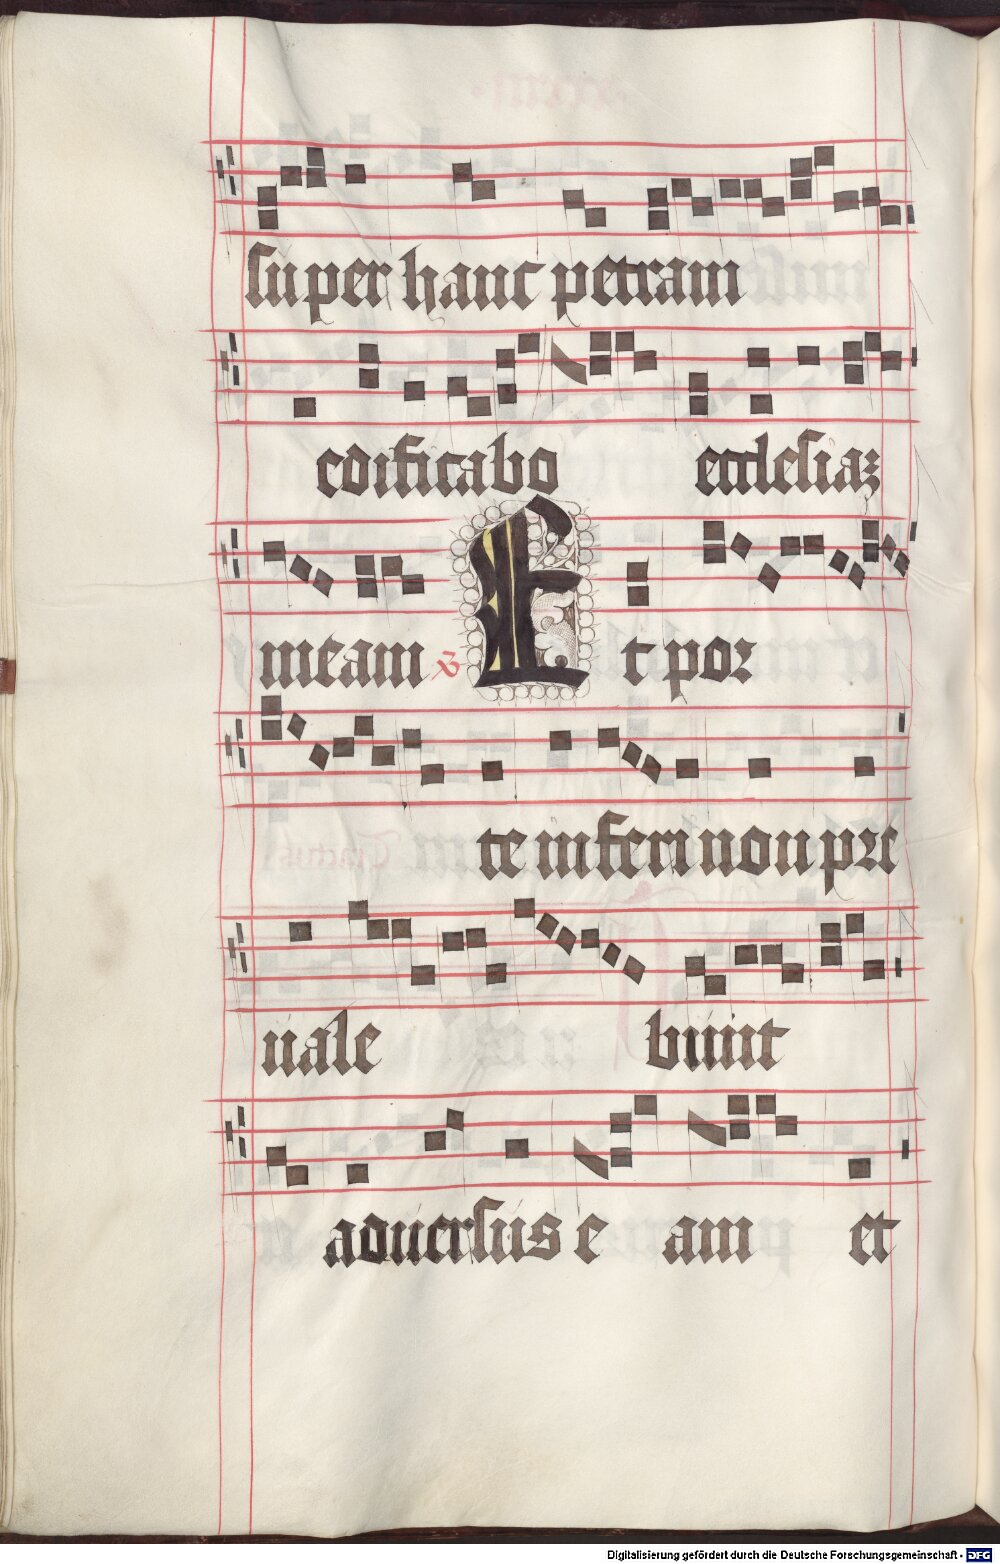 super hanc petram
edificabo ecclesiaz
meam ℣ Et por
te inferi non pre
uale bunt
aduersus e am et
Digitalisierung gefördert durch die Deutsche Forschungsgemeinschaft - DFG